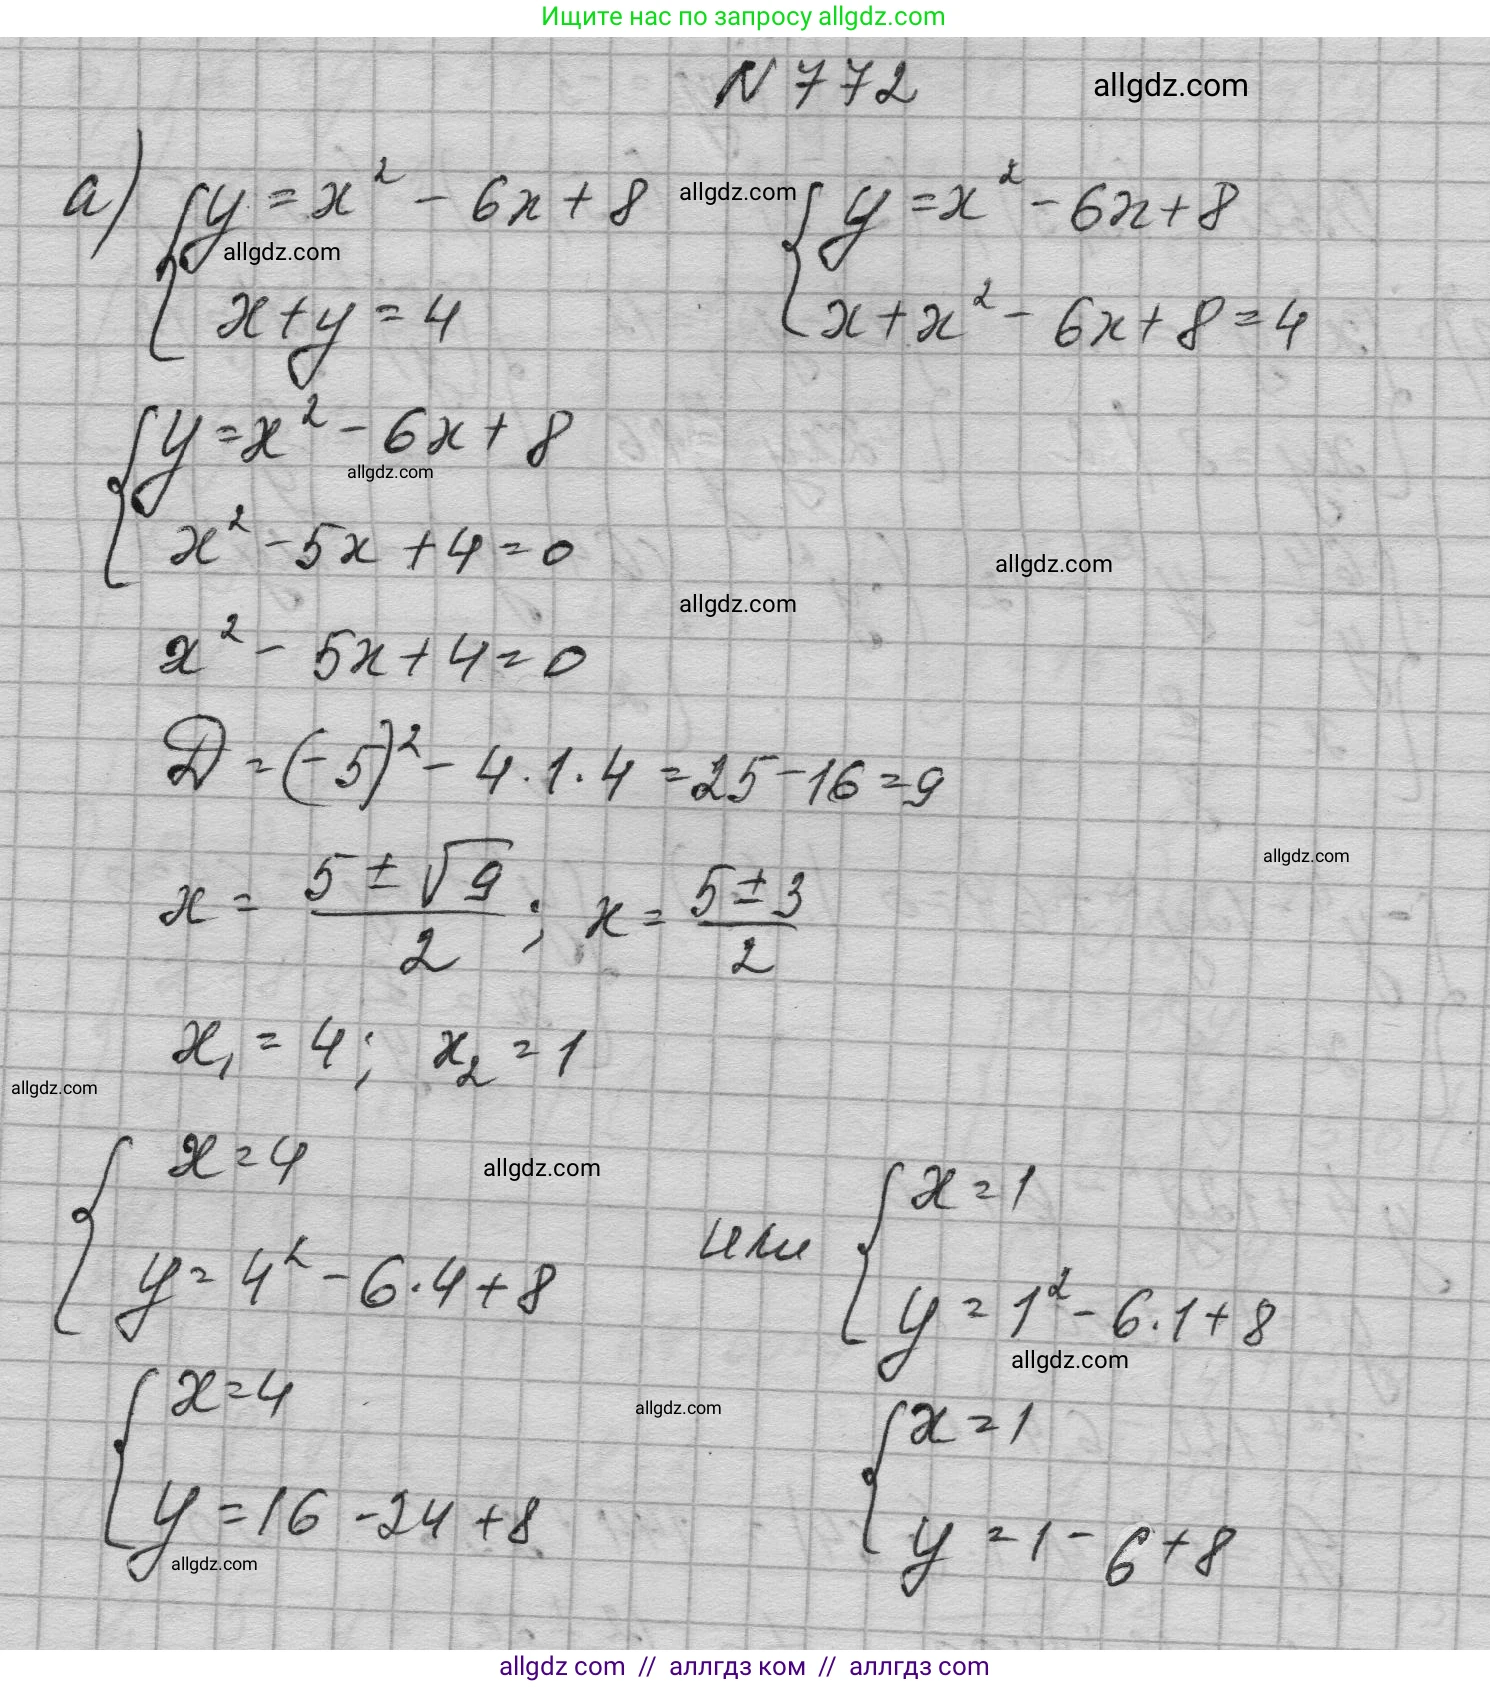 Ищите нас по запросу allgdz.com
N 772 allgdz.com
а) { y = x² - 6x + 8 allgdz.com { y = x² - 6x + 8
allgdz.com
x + y = 4 x + x² - 6x + 8 = 4
{ y = x² - 6x + 8
allgdz.com
x² - 5x + 4 = 0
allgdz.com
allgdz.com
x² - 5x + 4 = 0
D = (-5)² - 4 · 1 · 4 = 25 - 16 = 9
allgdz.com
x = (5 ± √9)/2 ; x = (5 ± 3)/2
x₁ = 4 ; x₂ = 1
allgdz.com
{ x = 4 allgdz.com { x = 1
или
y = 4² - 6 · 4 + 8 y = 1² - 6 · 1 + 8
allgdz.com
{ x = 4 allgdz.com { x = 1
y = 16 - 24 + 8 y = 1 - 6 + 8
allgdz.com
allgdz com // аллгдз ком // аллгдз com